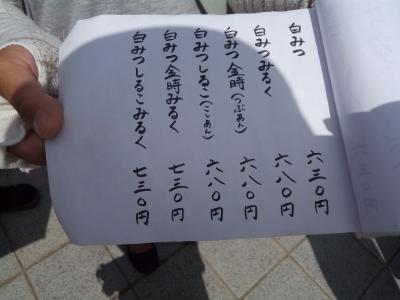 白みつ 六三〇円
白みつみるく 六八〇円
白みつ金時(つぶあん) 六八〇円
白みつしるこ(こしあん) 六八〇円
白みつ金時みるく 七三〇円
白みつしるこみるく 七三〇円